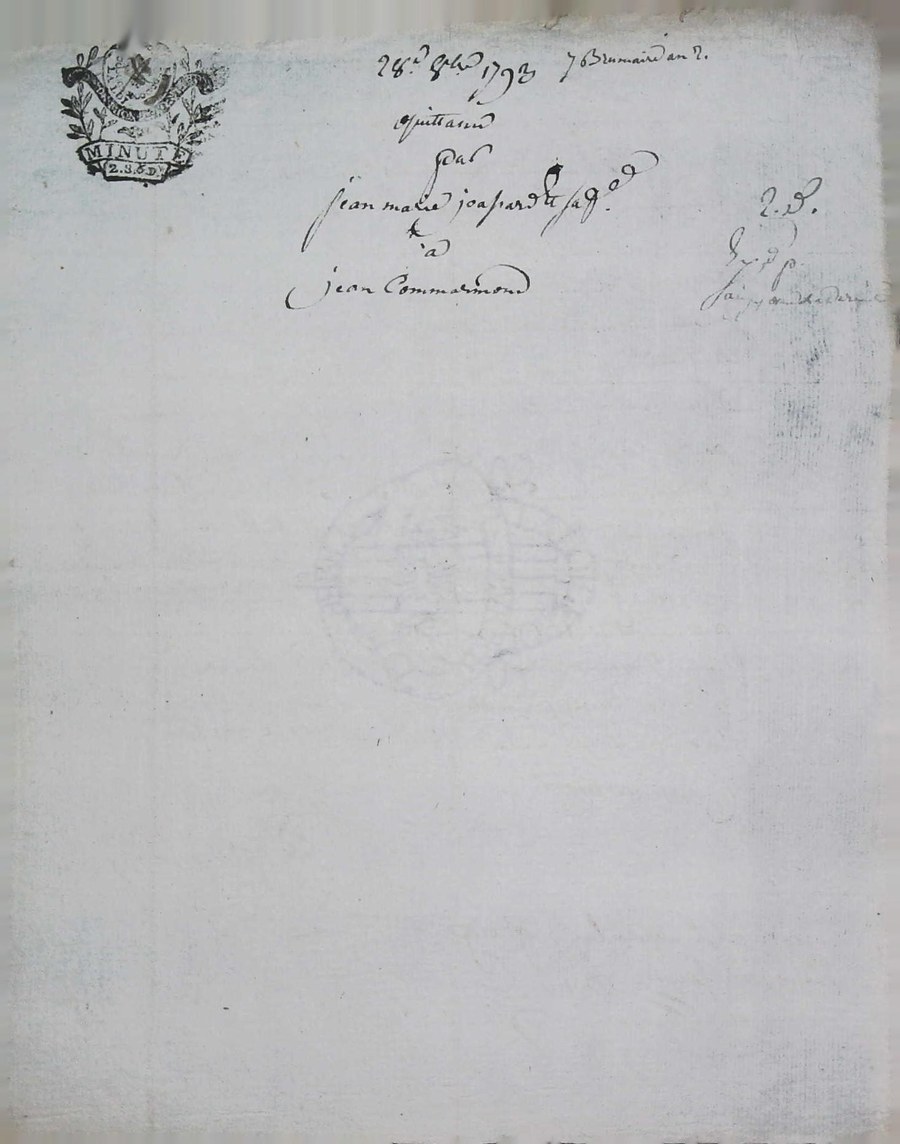 MINUTE
2. S. 6. D
28.e 8bre 1793 7 Brumaire an 2.
quittance
par
jean marie joassard et sa
à
jean Commarmond
2. d.